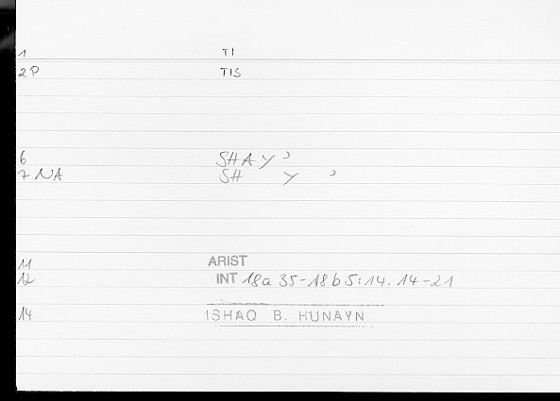 1 TI
2 P TIS
6 SHAY'
7 NA SH Y '
11 ARIST
12 INT 18a 35-18b5:14.14-21
14 ISHAQ B. HUNAYN